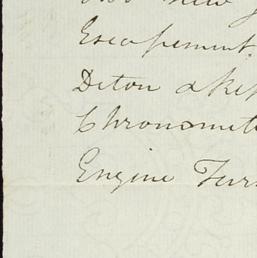 new
Escapement.
Diton a Kep
Chronomet
Engine Tur